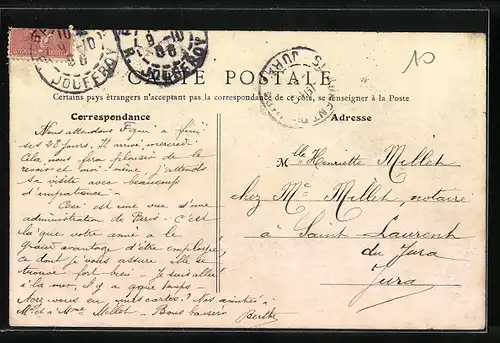 JOUFFROY
JOUFFROY
CARTE POSTALE
Certains pays étrangers n'acceptent pas la correspondance de ce côté, se renseigner à la Poste
Correspondance
Adresse
Nous attendons Fqui a fini
ses 28 jours. Il arrive mercredi.
Cela nous fera plaisir de le
revoir et moi-même j'attends
sa visite avec beaucoup
d'impatience -
Ceci est une vue d'une
administration de Paris - C'est
là que votre amie a le
grand avantage d'être employée,
ce dont je vous assure elle se
trouve fort bien - Je suis allée
à la mer, il y a qque temps -
Avez-vous eu mes cartes? Nos amitiés à
Mr et à Mme Millet - Bons baisers
Berthe
Melle Henriette Millet
chez Me Millet, notaire
à Saint Laurent
du Jura
Jura